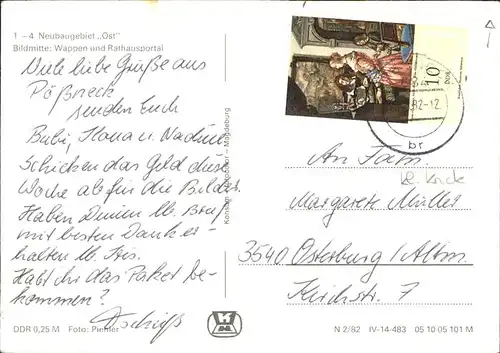 1 – 4 Neubaugebiet „Ost"
Bildmitte: Wappen und Rathausportal
Viele liebe Grüße aus
Pößneck
senden Euch
Bubi, Ilona u. Nadine
Schicken das Geld diese
Woche ab für die Bilder.
Haben Deinen lb. Brief
mit besten Dank er-
halten lb. Iris.
Habt ihr das Paket be-
kommen?
Tschüß
DDR 0,25 M Foto:
Magdeburg
10
DDR
82-12
br
An Fam.
Margarete Müller
3540 Osterburg / Altm.
Kirchstr. 7
N 2/82 IV-14-483 05 10 05 101 M